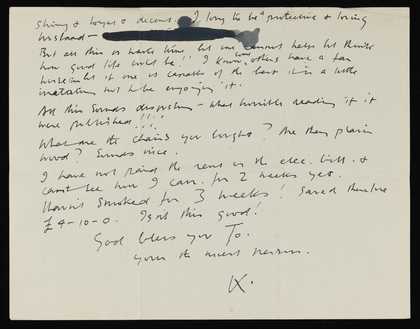 Strong & loyal & decent. I long to be a protective & loving
husband —
But all this is harts time but one cannot help but think
how good life could be!! I know others have a far
worse time but if one is capable of the best it is a little
irritating not to be enjoying it.
All this sounds disgusting — what horrible reading if it
were published!!!
What are the chairs you bought? Are they plain
wood? Sounds nice.
I have not paid the rent or the elec. bill &
can't see how I can for 2 weeks yet.
Haven't smoked for 3 weeks! Saved therefore
£4-10-0. Isn't this good!
God bless you To.
yours the nicest person.
K.